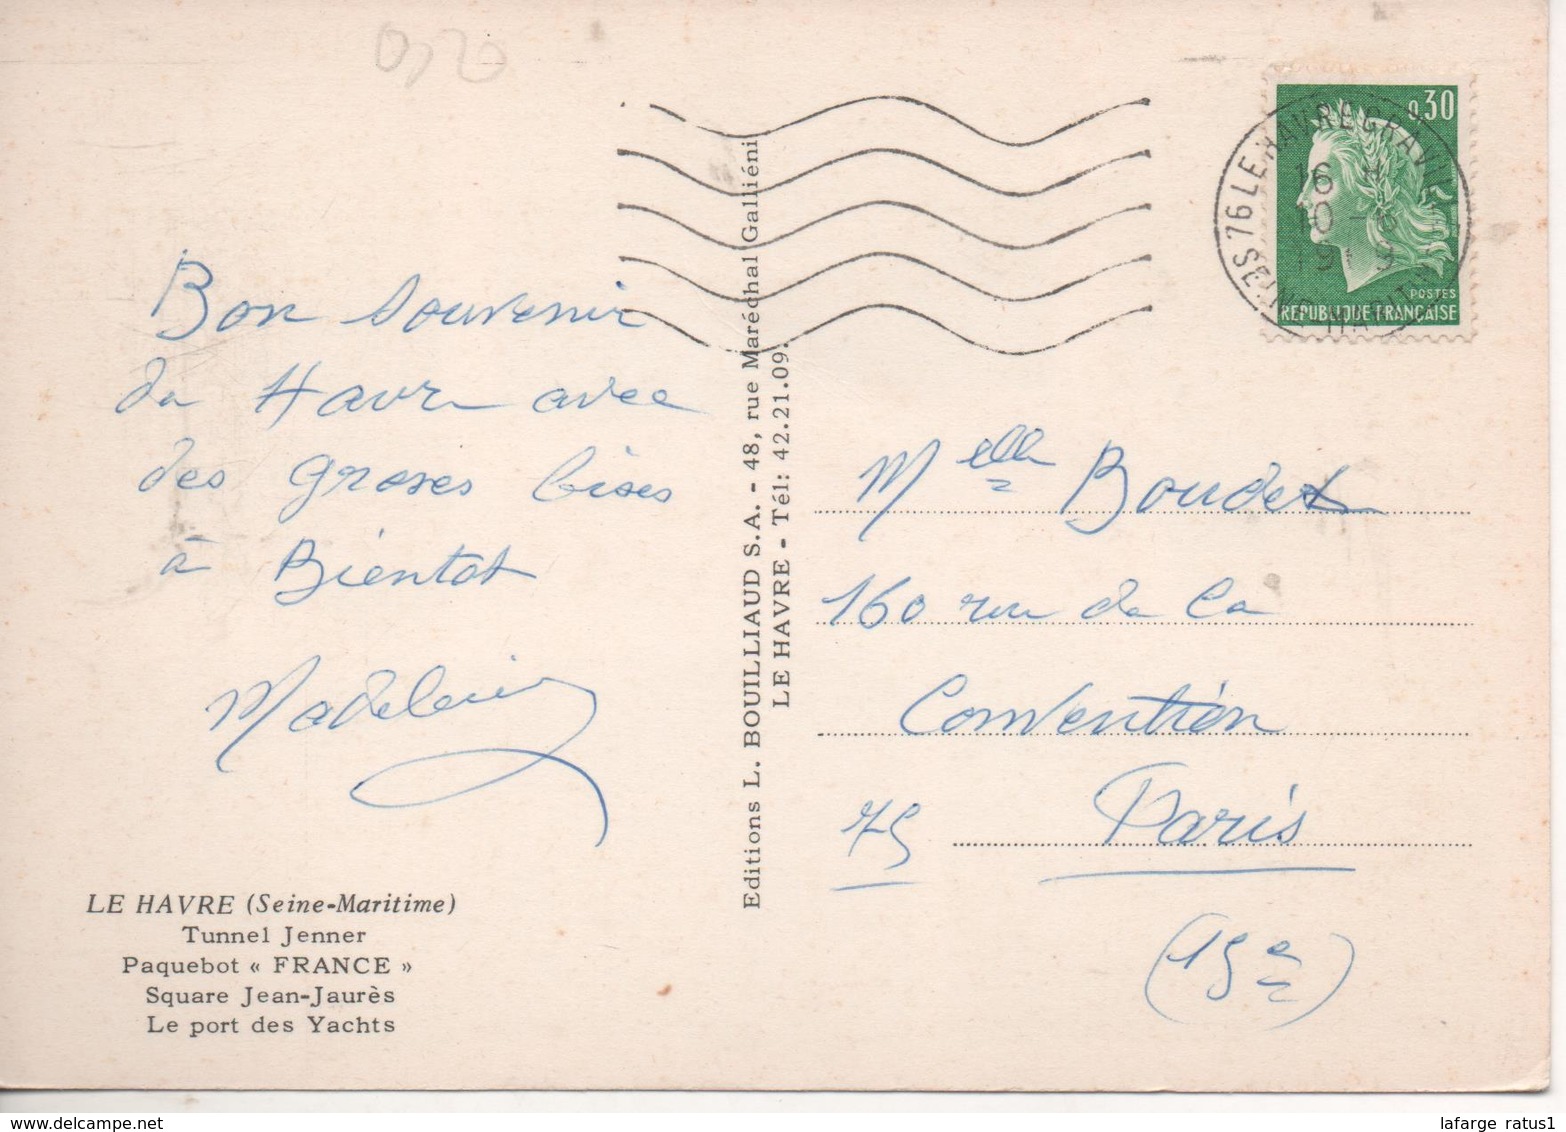 0,20
Bon souvenir
du Havre avec
des groses bises
à Bientot
Madeleine
LE HAVRE (Seine-Maritime)
Tunnel Jenner
Paquebot « FRANCE »
Square Jean-Jaurès
Le port des Yachts
Editions L. BOUILLIAUD S.A. - 48, rue Maréchal Galliéni
LE HAVRE - Tél: 42.21.09.
0,30
POSTES
REPUBLIQUE FRANÇAISE
76 LE HAVRE GRAVILLE
16 H
10 - 6
SEINE MARITIME
Melle Boudet
160 rue de la
Convention
75 Paris
(15e)
lafarge ratus1